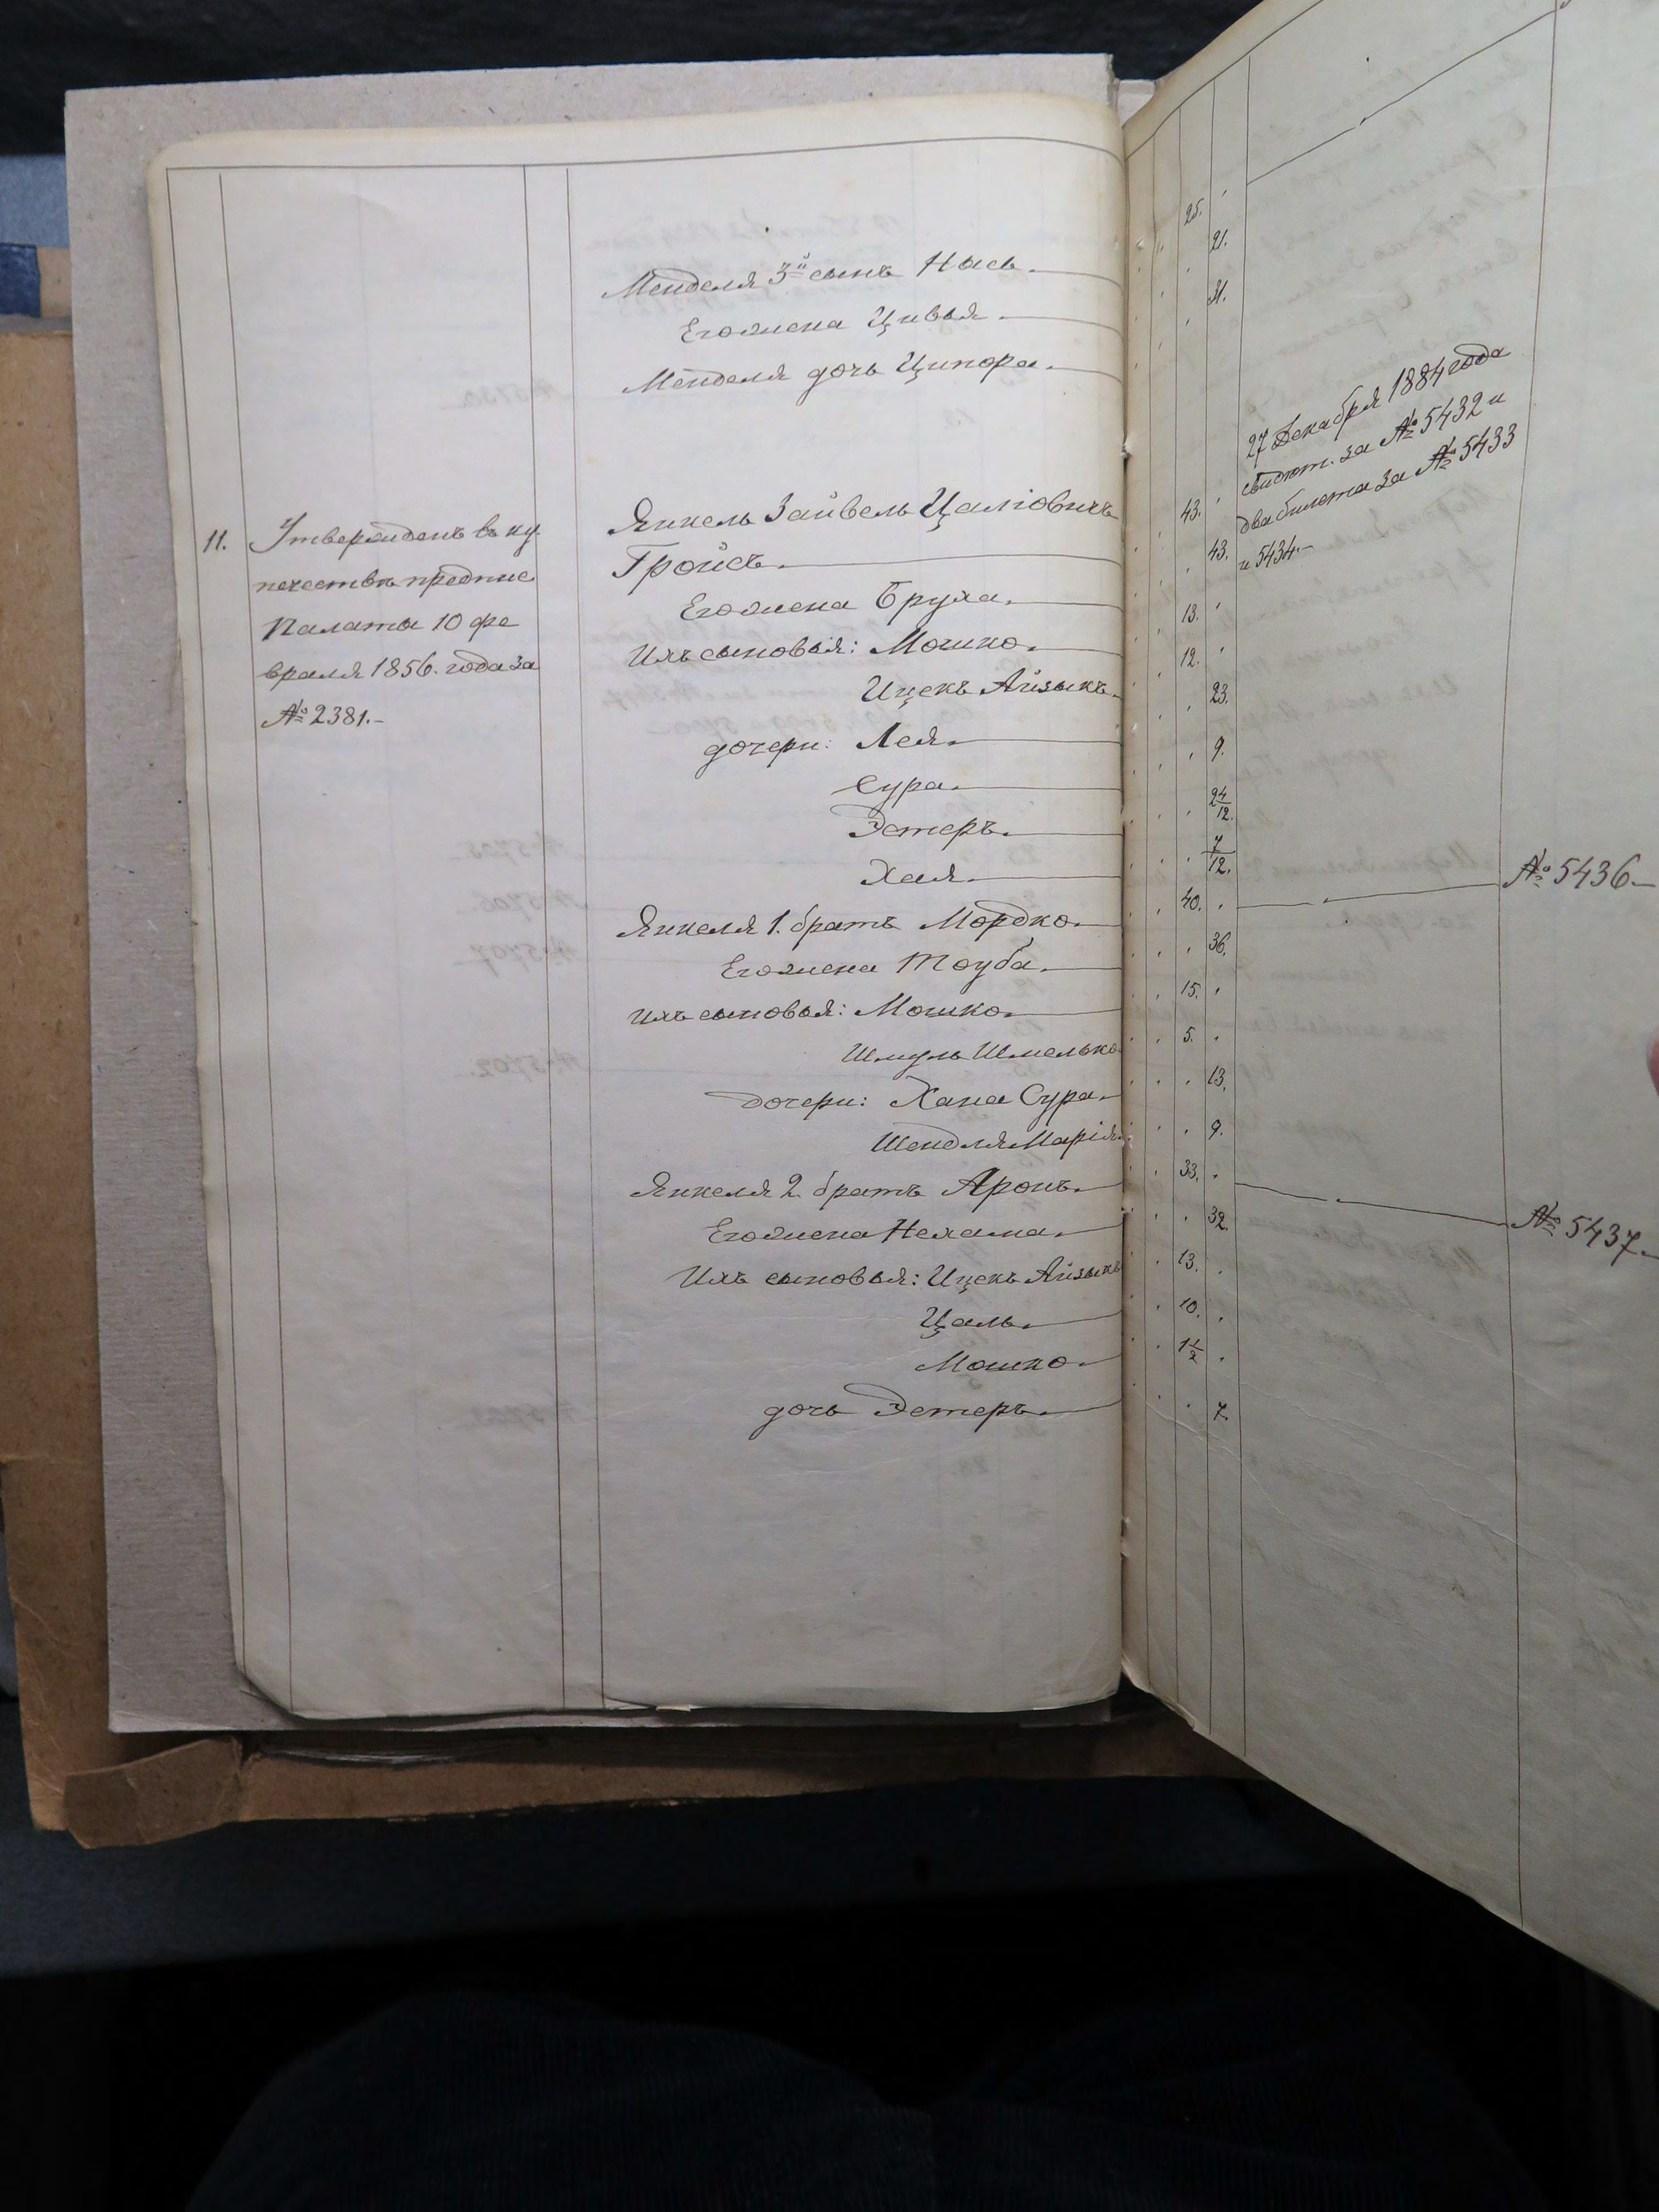 Менделя 3й сынъ Нысь.
Его жена Цивья.
Менделя дочь Ципора.
25.
21.
31.
11.
Утвержденъ въ ку
печествѣ предпис
Палаты 10 фе
враля 1856. года за
№ 2381.-
Янкель Зайвель Цаліовичъ
Гройсъ.
43.
Его жена Бруха.
43.
Ихъ сыновья: Мошко.
13.
Ицекъ Айзыкъ.
12.
дочери: Лея.
23.
Сура.
9.
Эстеръ.
24/12.
Хая.
7/12.
Янкеля 1. братъ Мордко.
40.
Его жена Тоуба.
36.
Ихъ сыновья: Мошко.
15.
Шмуль Шмелько
5.
дочери: Хана Сура.
13.
Шендля Марія.
9.
Янкеля 2. братъ Аронъ.
33.
Его жена Нехама.
32.
Ихъ сыновья: Ицекъ Айзыкъ
13.
Цаль.
10.
Мошко.
1 1/2
дочь Эстеръ.
7.
27 Декабря 1884 года
свидѣт. за № 5432 и
два билета за № 5433
и 5434.-
№ 5436.-
№ 5437.-